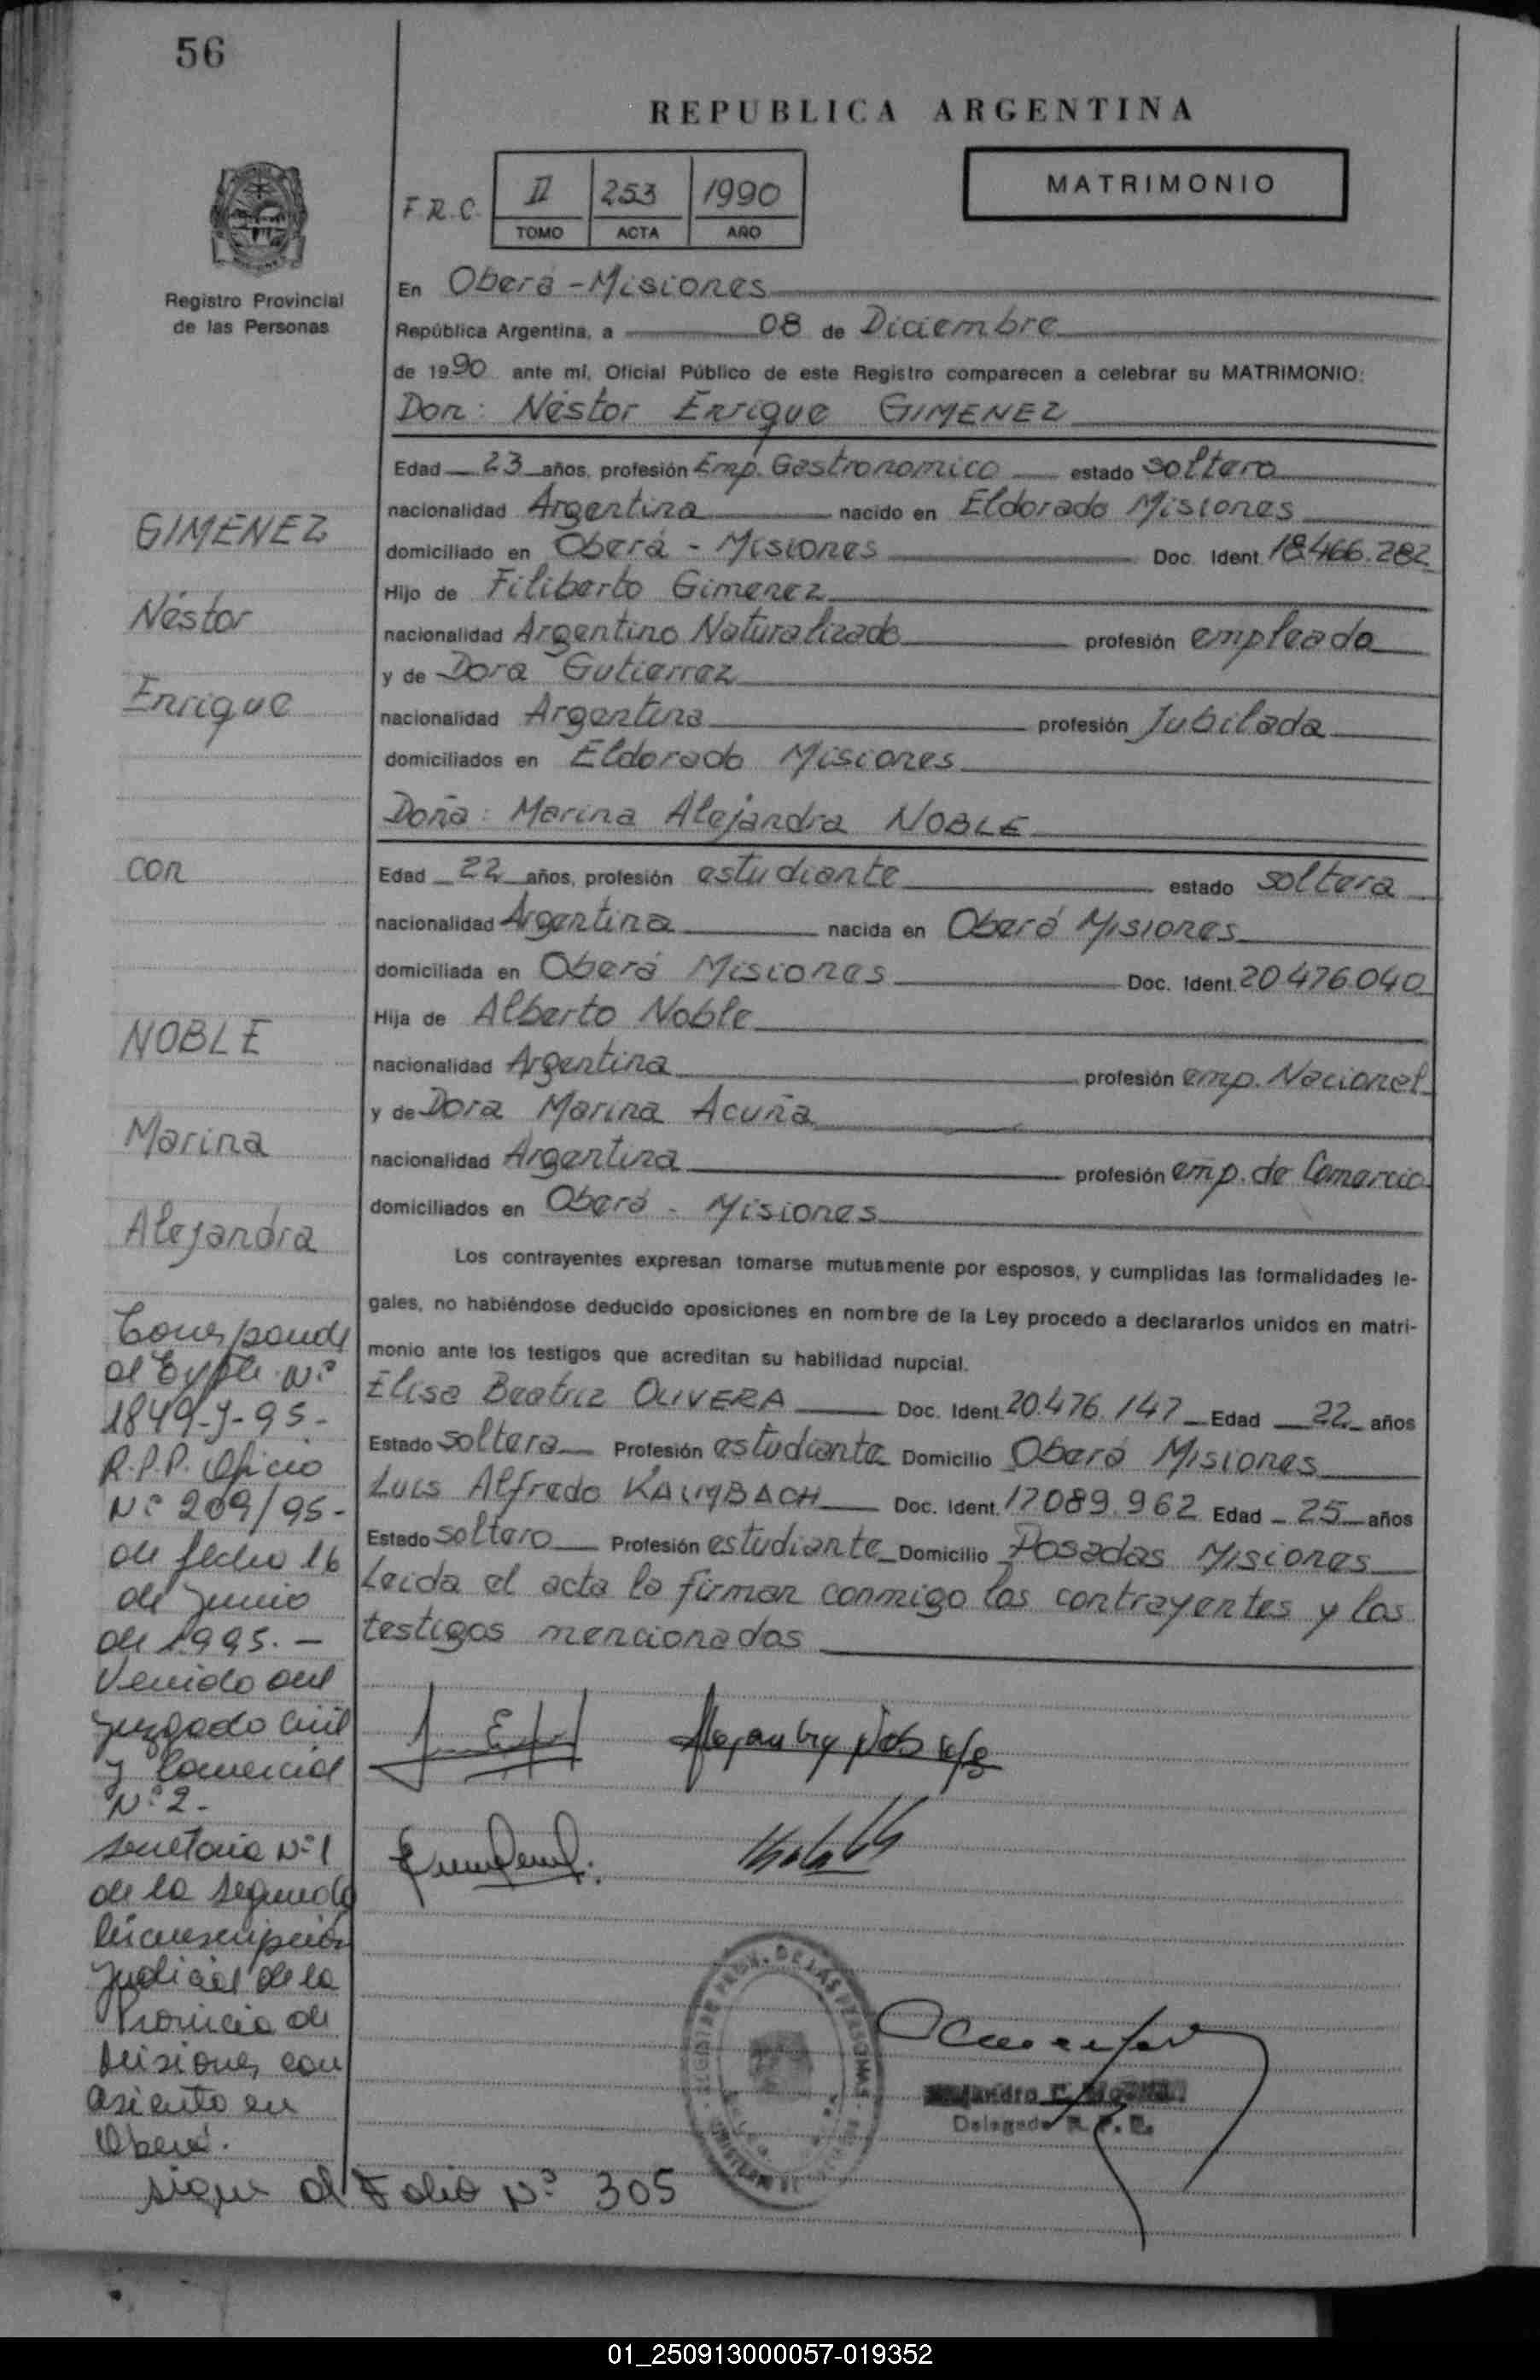 56
REPUBLICA ARGENTINA
MATRIMONIO
F.R.C.
II 253 1990
TOMO ACTA AÑO
Registro Provincial
de las Personas
En Oberá - Misiones
República Argentina, a 08 de Diciembre
de 1990 ante mí, Oficial Público de este Registro comparecen a celebrar su MATRIMONIO:
Don: Néstor Enrique GIMENEZ
Edad 23 años, profesión Emp. Gastronomico estado soltero
nacionalidad Argentina nacido en Eldorado Misiones
domiciliado en Oberá - Misiones Doc. Ident. 18.466.282
Hijo de Filiberto Gimenez
nacionalidad Argentino Naturalizado profesión empleado
y de Dora Gutierrez
nacionalidad Argentina profesión Jubilada
domiciliados en Eldorado Misiones
Doña: Marina Alejandra NOBLE
Edad 22 años, profesión estudiante estado soltera
nacionalidad Argentina nacida en Oberá Misiones
domiciliada en Oberá Misiones Doc. Ident. 20.476.040
Hija de Alberto Noble
nacionalidad Argentina profesión emp. Nacional
y de Dora Marina Acuña
nacionalidad Argentina profesión emp. de Comercio
domiciliados en Oberá - Misiones
Los contrayentes expresan tomarse mutuamente por esposos, y cumplidas las formalidades le-
gales, no habiéndose deducido oposiciones en nombre de la Ley procedo a declararlos unidos en matri-
monio ante los testigos que acreditan su habilidad nupcial.
Elisa Beatriz OLIVERA Doc. Ident. 20.476.147 Edad 22 años
Estado soltera Profesión estudiante Domicilio Oberá Misiones
Luis Alfredo KALMBACH Doc. Ident. 17.089.962 Edad 25 años
Estado soltero Profesión estudiante Domicilio Posadas Misiones
Leida el acta la firman conmigo los contrayentes y los
testigos mencionados
GIMENEZ
Néstor
Enrique
con
NOBLE
Marina
Alejandra
Corresponde
al Expte. Nº
1849-J-95.-
R.P.P. Oficio
Nº 209/95-
de fecha 16
de Junio
de 1995.-
Venido del
Juzgado Civil
y Comercial
Nº 2.-
Secretaria Nº 1
de la Segunda
Circunscripción
Judicial de la
Provincia de
Misiones con
asiento en
Oberá.
Sigue al Folio Nº 305
Delegado R. P. P.
01_250913000057-019352